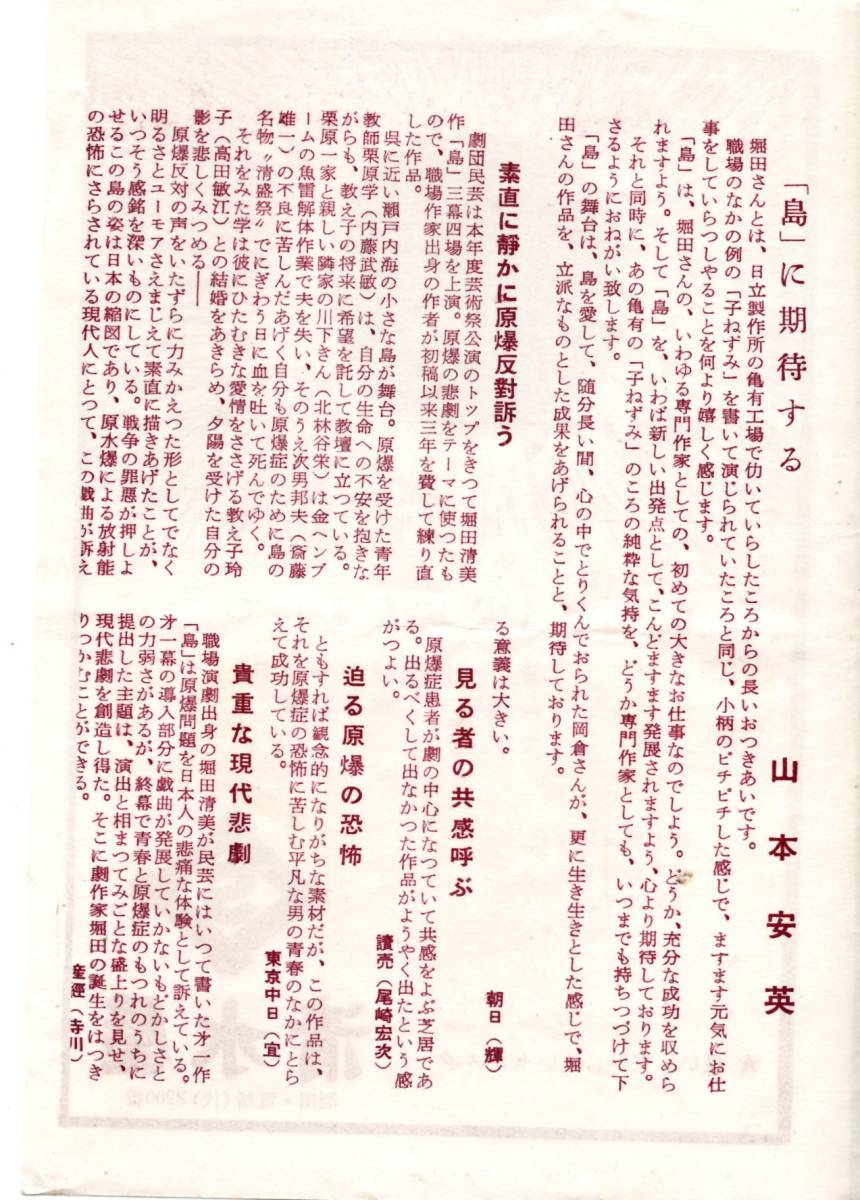 「島」に期待する
山本安英
堀田さんとは、日立製作所の亀有工場で仂いていらしたころからの長いおつきあいです。
職場のなかの例の「子ねずみ」を書いて演じられていたころと同じ、小柄のピチピチした感じで、ますます元気にお仕
事をしていらつしやることを何より嬉しく感じます。
「島」は、堀田さんの、いわゆる専門作家としての、初めての大きなお仕事なのでしよう。どうか、充分な成功を収めら
れますよう。そして「島」を、いわば新しい出発点として、こんどますます発展されますよう、心より期待しております。
それと同時に、あの亀有の「子ねずみ」のころの純粋な気持を、どうか専門作家としても、いつまでも持ちつづけて下
さるようにおねがい致します。
「島」の舞台は、島を愛して、随分長い間、心の中でとりくんでおられた岡倉さんが、更に生き生きとした感じで、堀
田さんの作品を、立派なものとした成果をあげられることと、期待しております。
素直に静かに原爆反對訴う
劇団民芸は本年度芸術祭公演のトップをきつて堀田清美
作「島」三幕四場を上演。原爆の悲劇をテーマに使つたも
ので、職場作家出身の作者が初稿以来三年を費して練り直
した作品。
呉に近い瀬戸内海の小さな島が舞台。原爆を受けた青年
教師栗原学（内藤武敏）は、自分の生命への不安を抱きな
がらも、教え子の将来に希望を託して教壇に立つている。
栗原一家と親しい隣家の川下きん（北林谷栄）は金ヘンブ
ームの魚雷解体作業で夫を失い、そのうえ次男邦夫（斎藤
雄一）の不良に苦しんだあげく自分も原爆症のために島の
名物〝清盛祭〟でにぎわう日に血を吐いて死んでゆく。
それをみた学は彼にひたむきな愛情をささげる教え子玲
子（高田敏江）との結婚をあきらめ、夕陽を受けた自分の
影を悲しくみつめる――
原爆反対の声をいたずらに力みかえつた形としてでなく
明るさとユーモアさえまじえて素直に描きあげたことが、
いつそう感銘を深いものにしている。戦争の罪悪が押しよ
せるこの島の姿は日本の縮図であり、原水爆による放射能
の恐怖にさらされている現代人にとつて、この戯曲が訴え
る意義は大きい。
朝日（輝）
見る者の共感呼ぶ
原爆症患者が劇の中心になつていて共感をよぶ芝居であ
る。出るべくして出なかつた作品がようやく出たという感
がつよい。
讀売（尾崎宏次）
迫る原爆の恐怖
ともすれば観念的になりがちな素材だが、この作品は、
それを原爆症の恐怖に苦しむ平凡な男の青春のなかにとら
えて成功している。
東京中日（宜）
貴重な現代悲劇
職場演劇出身の堀田清美が民芸にはいつて書いた才一作
「島」は原爆問題を日本人の悲痛な体験として訴えている。
才一幕の導入部分に戯曲が発展していかないもどかしさと
の力弱さがあるが、終幕で青春と原爆症のもつれのうちに
提出した主題は、演出と相まつてみごとな盛上りを見せ、
現代悲劇を創造し得た。そこに劇作家堀田の誕生をはつき
りつかむことができる。
産經（寺川）